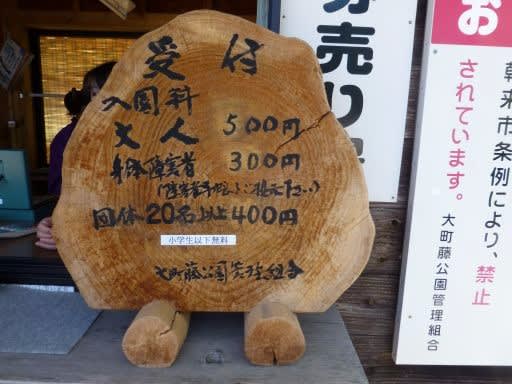 受付
入園料
大人 500円
身体障害者 300円
(障害者手帳をご提示下さい)
団体20名以上400円
小学生以下無料
大町藤公園管理組合
売り
お
朝来市条例により、禁止
されています。
大町藤公園管理組合